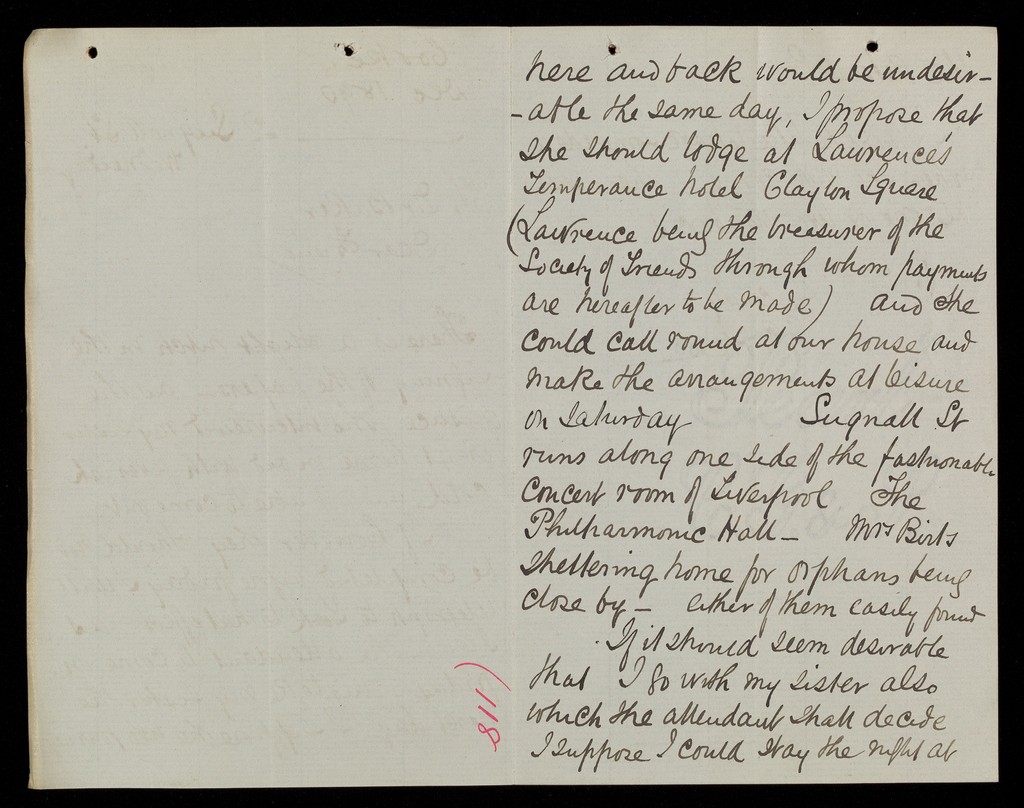 here and back would be undesir-
-able the same day, I propose that
she should lodge at Lawrence's
Temperance hotel Clayton Square
(Lawrence being the treasurer of the
Society of Friends through whom payments
are hereafter to be made) and she
could call round at our house and
make the arrangements at leisure
on Saturday Sugnall St
runs along one side of the fashionable
Concert room of Liverpool The
Philharmonic Hall - Mrs Birts
sheltering home for orphans being
close by - either of them easily found
If it should seem desirable
that I go with my sister also
which the attendant shall decide
I suppose I could stay the night at
811)